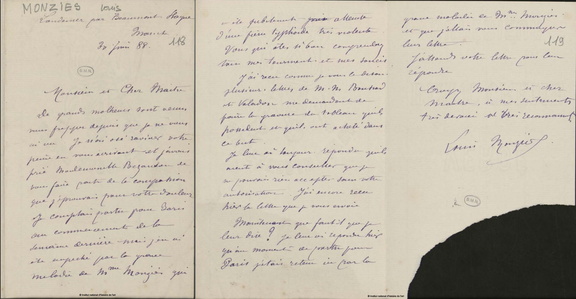 MONZIES Louis
par Beaumont
30 Juin 88.
118
Monsieur et Cher Maître
De grands malheurs sont venus
me frapper depuis que je ne vous
ai vu. Je n'osai raviver votre
peine en vous écrivant et j'avais
prié Mademoiselle de
vous faire part de la
que j'éprouvais pour votre douleur
Je comptais partir pour Paris
au commencement de la
semaine dernière mais j'en ai
été empêché par la grave
maladie de Mme Monziès qui
a été subitement atteinte
d'une fièvre typhoïde très violente
Vous qui êtes si bon comprendrez
tous mes tourments et mes soucis
J'ai reçu comme je vous le
plusieurs lettres de M.M. Boussod
et Valadon me demandant de
faire la gravure du tableau qu'ils
possèdent et qu'ils ont acheté dans
ce but.
Je leur ai toujours répondu qu'ils
aient à vous consulter que je
ne pouvais rien accepter sans votre
autorisation. J'ai encore reçu
hier la lettre que je vous envoie
Maintenant que faut-il que je
leur dise? Je leur ai répondu hier
qu'au moment de partir pour
Paris j'étais retenu ici par la
grave maladie de Mme Monziès
et que j'allais vous communiquer
leur lettre.
J'attends votre lettre pour leur
répondre
119
Croyez Monsieur et cher
Maître, à mes sentiments
très dévoués et très reconnaissants
Louis Monziès